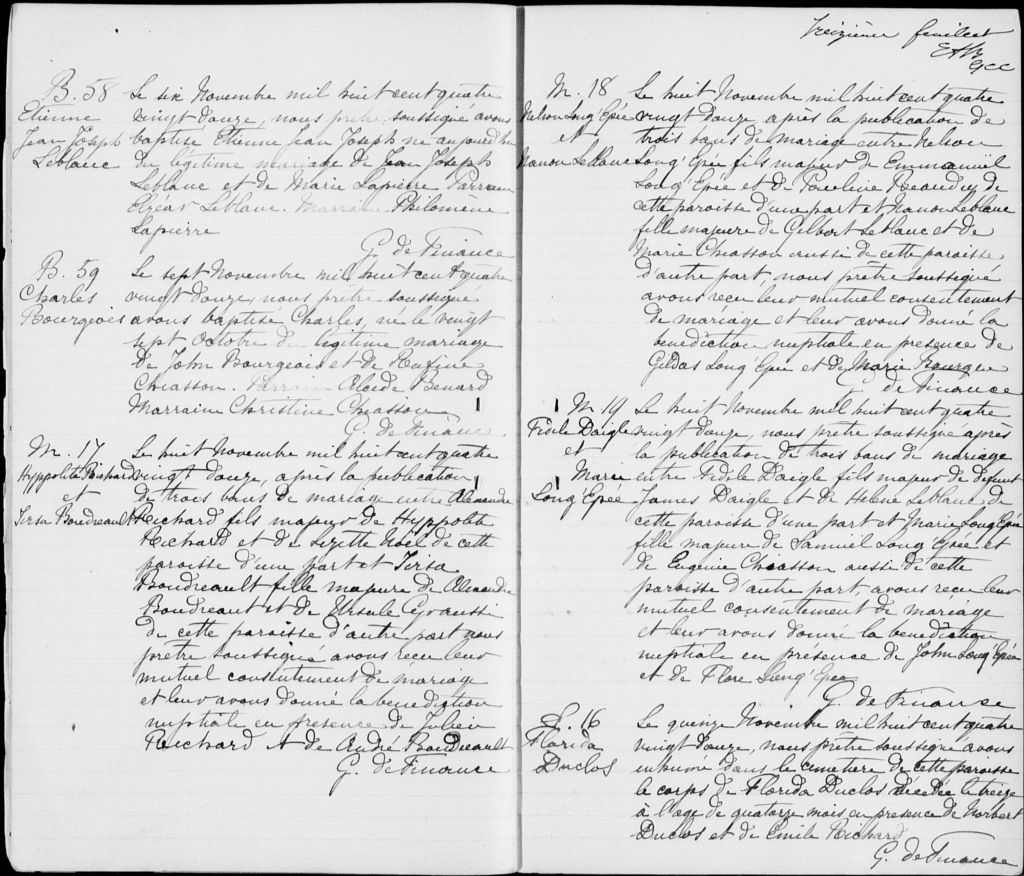 B. 58
Etienne
Jean Joseph
Leblanc
Le six Novembre mil huit cent quatre
vingt douze, nous prêtre soussigné avons
baptisé Etienne Jean Joseph né aujourd'hui
du légitime mariage de Jean Joseph
Leblanc et de Marie Lapierre Parrain
Leblanc. Marraine Philomène
Lapierre
G. de Finance
B. 59
Charles
Bourgeois
Le sept Novembre mil huit cent quatre
vingt douze, nous prêtre soussigné
avons baptisé Charles, né le vingt
sept Octobre du légitime mariage
de John Bourgeois et de Rufine
Chiasson. Parrain Alcide Benard
Marraine Christine Chiasson
G. de Finance
M. 17
Hyppolite Richard
et
Tersa Boudreault
Le huit Novembre mil huit cent quatre
vingt douze, après la publication
de trois bans de mariage entre Alexandre
Richard fils majeur de Hyppolite
Richard et de Lizette Noël de cette
paroisse d'une part et Tersa
Boudreault fille majeure de Alexandre
Boudreault et de Ursule Cyr aussi
de cette paroisse d'autre part nous
prêtre soussigné avons reçu leur
mutuel consentement de mariage
et leur avons donné la benediction
nuptiale en presence de Julien
Richard et de André Boudreault
G. de Finance
Treizième feuillet
M. 18
Nelson Long'Epée
et
Nanon Leblanc
Le huit Novembre mil huit cent quatre
vingt douze après la publication de
trois bans de mariage entre Nelson
Long'Epée fils majeur de Emmanuël
Long'Epée et de Pauline Beaudry de
cette paroisse d'une part et Nanon Leblanc
fille majeure de Gilbert Leblanc et de
Marie Chiasson aussi de cette paroisse
d'autre part, nous prêtre soussigné
avons reçu leur mutuel consentement
de mariage et leur avons donné la
benediction nuptiale en presence de
Gildas Long'Epée et de Marie Bourgeois
G. de Finance
M 19
Fidèle Daigle
et
Marie
Long'Epée
Le huit Novembre mil huit cent quatre
vingt douze, nous prêtre soussigné après
la publication de trois bans de mariage
entre Fidèle Daigle fils majeur de defunt
James Daigle et de Helene Leblanc de
cette paroisse d'une part et Marie Long'Epée
fille majeure de Samuël Long'Epée et
de Eugénie Chiasson aussi de cette
paroisse d'autre part, avons reçu leur
mutuel consentement de mariage
et leur avons donné la benediction
nuptiale en présence de John Long'Epée
et de Flore Long'Epée
G. de Finance
S. 16
Florida
Duclos
Le quinze Novembre mil huit cent quatre
vingt douze, nous prêtre soussigné avons
inhumé dans le cimetière de cette paroisse
le corps de Florida Duclos décédée le treize
à l'age de quatorze mois en presence de Norbert
Duclos et de Emile Richard
G. de Finance